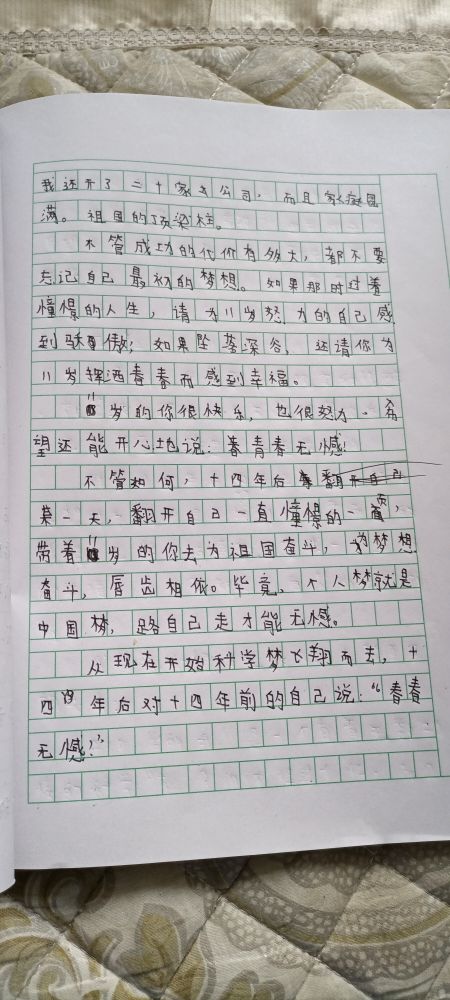 我还开了二十家大公司，而且家庭圆
满。祖国的顶梁柱。
不管成功的代价有多大，都不要
忘记自己最初的梦想。如果那时过着
憧憬的人生，请为11岁努力的自己感
到骄傲；如果坠落深谷，还请你为
11岁挥洒青春而感到幸福。
11岁的你很快乐，也很努力。希
望还能开心地说：青春无憾！
不管如何，十四年后
某一天，翻开自己一直憧憬的一页，
带着11岁的你去为祖国奋斗，为梦想
奋斗，唇齿相依。毕竟，个人梦就是
中国梦，路自己走才能无憾。
从现在开始科学梦飞翔而去，十
四年后对十四年前的自己说：“青春
无憾！”